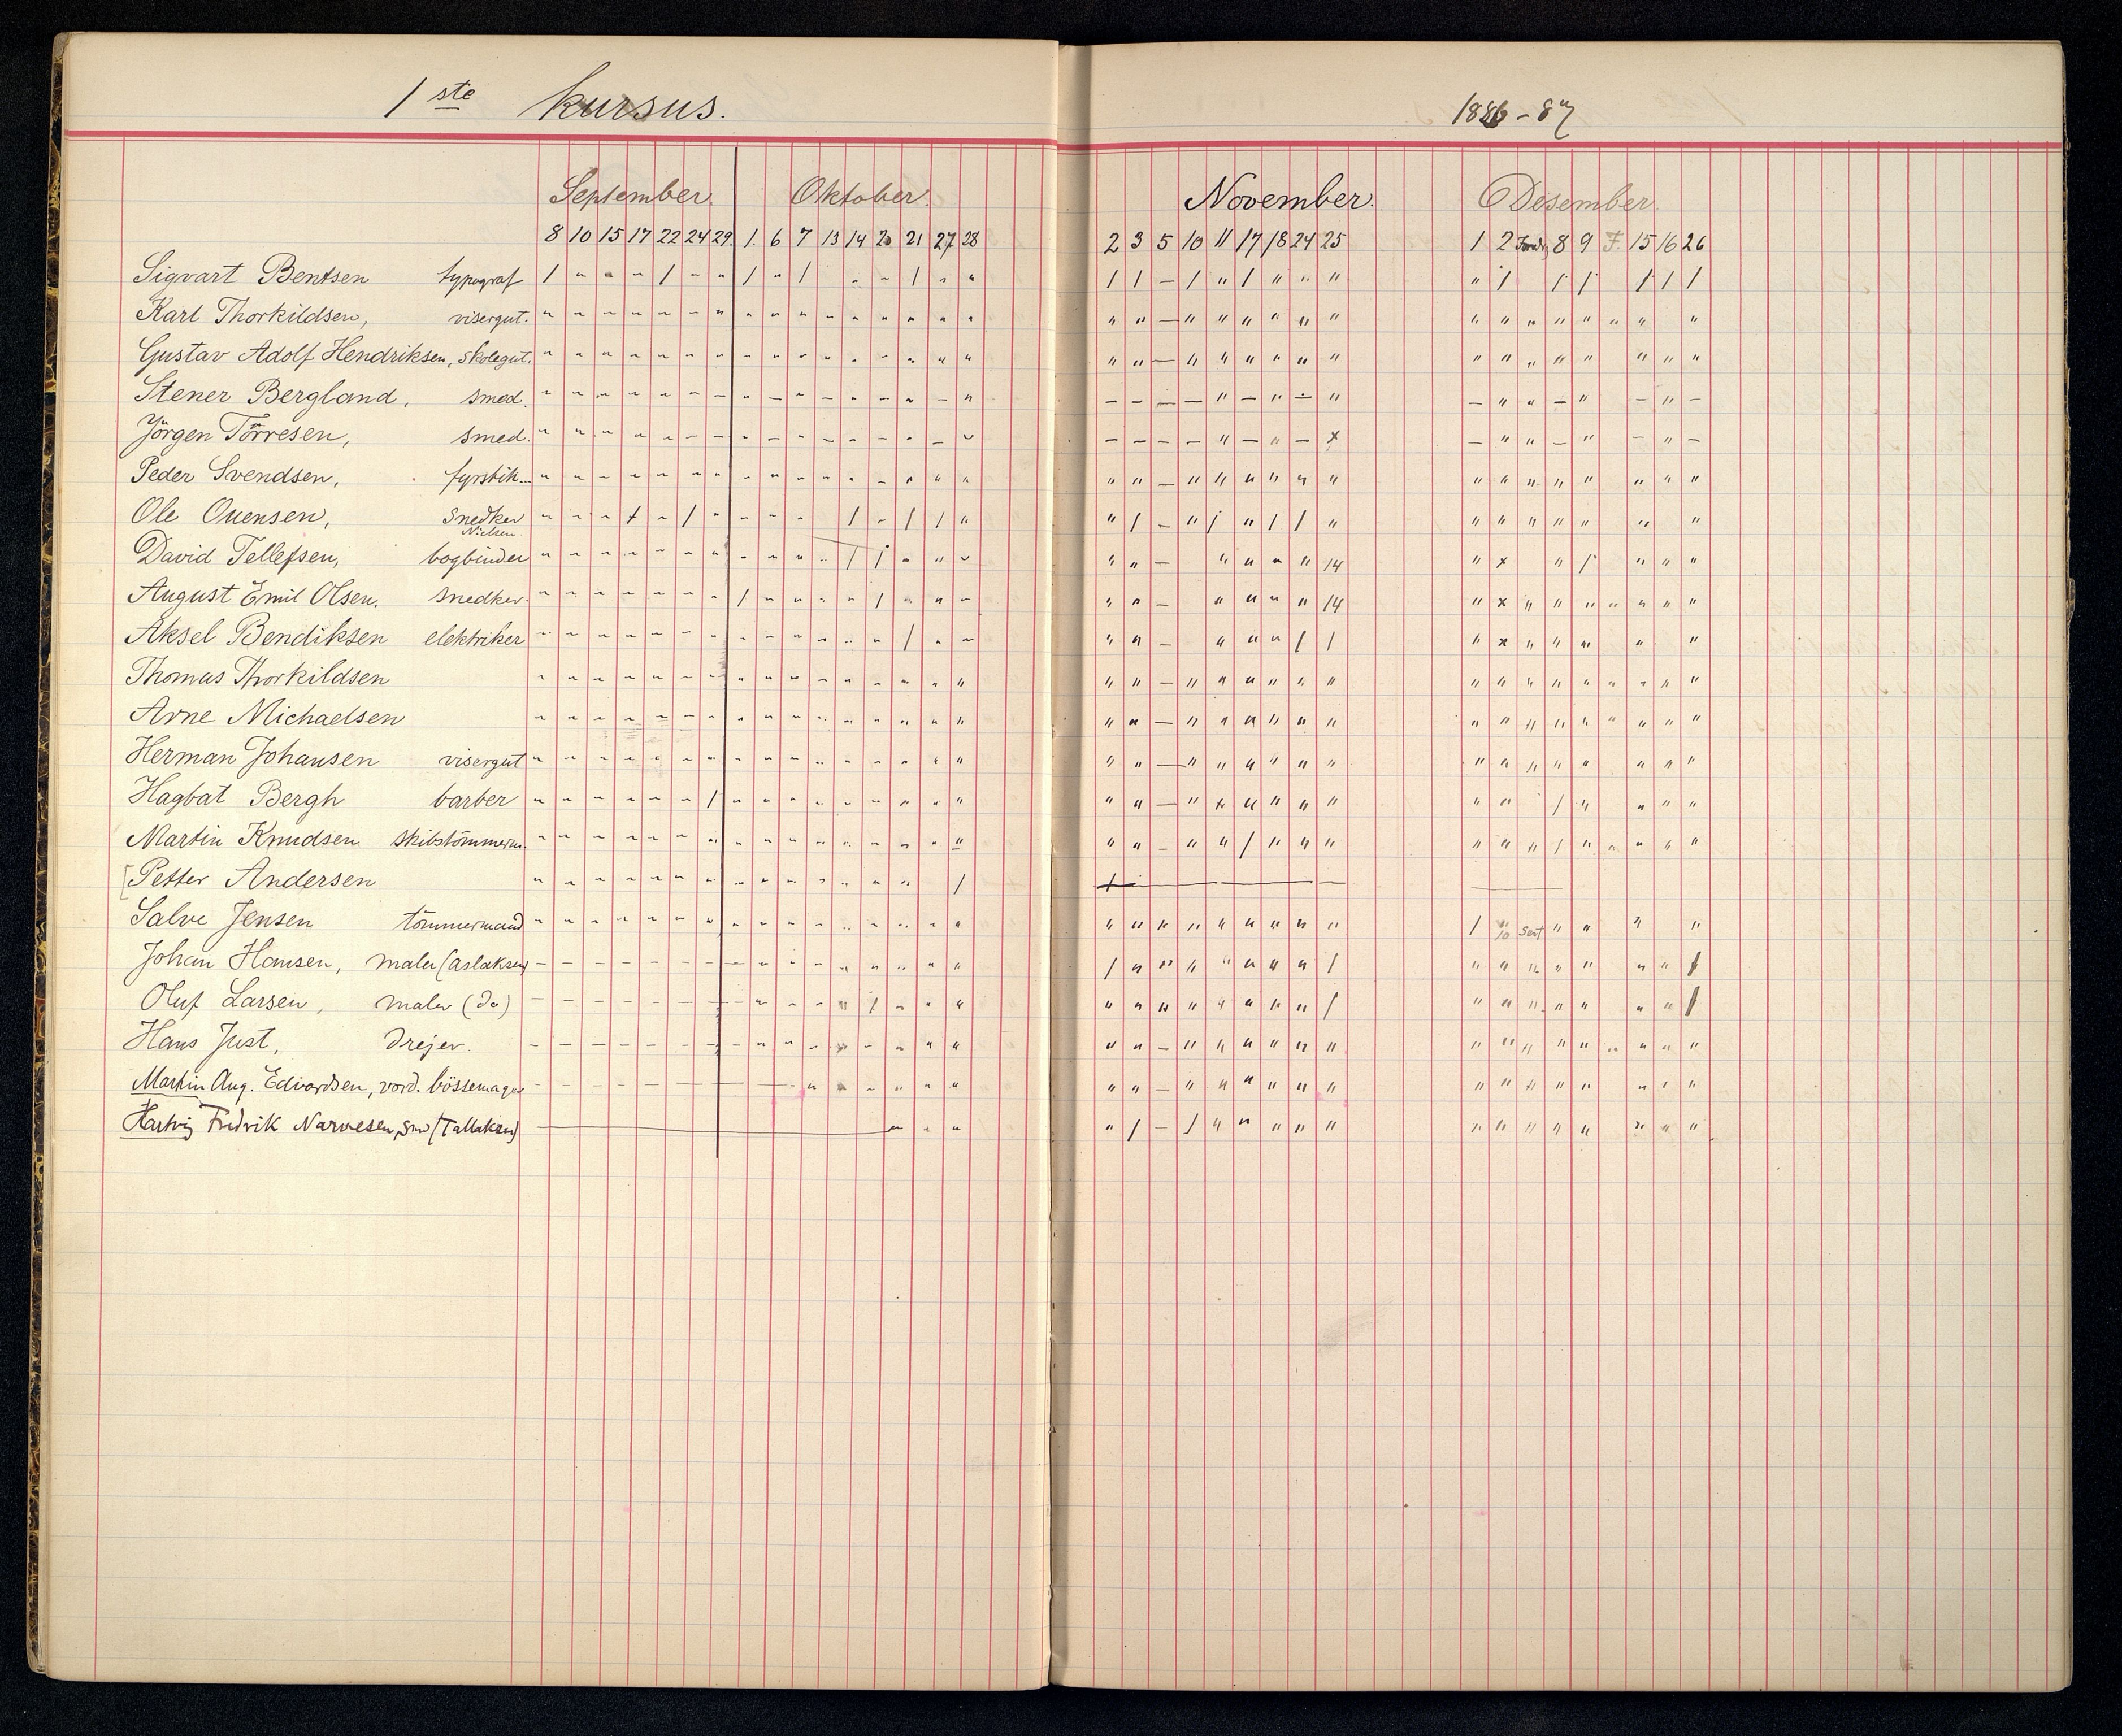 1ste kursus.
1886-87
September. Oktober. November. Desember.
8 10 15 17 22 24 29. 1. 6 7 13 14 20 21 27 28 2 3 5 10 11 17 18 24 25 1 2 8 9 F. 15 16 26
Sigvart Bentsen typograf
Karl Thorkildsen, visergut.
Gustav Adolf Hendriksen, skolegut.
Stener Bergland, smed.
Jörgen Törresen, smed.
Peder Svendsen, fyrstik...
Ole Ouensen, Snedker
Nielsen
David Tellefsen, bogbinder
August Emil Olsen, snedker.
Aksel Bendiksen elektriker
Thomas Thorkildsen
Arne Michaelsen
Herman Johansen visergut
Hagbat Bergh barber
Martin Knudsen skibstömmerm.
[Petter Andersen
Salve Jensen tömmermand
Johan Hansen, maler (Aslaksen)
Oluf Larsen, maler (do)
Hans Just, Drejer.
Martin Aug. Edvardsen, vord. bössemager
Hartvig Fredrik Narvesen, (Tallaksen)